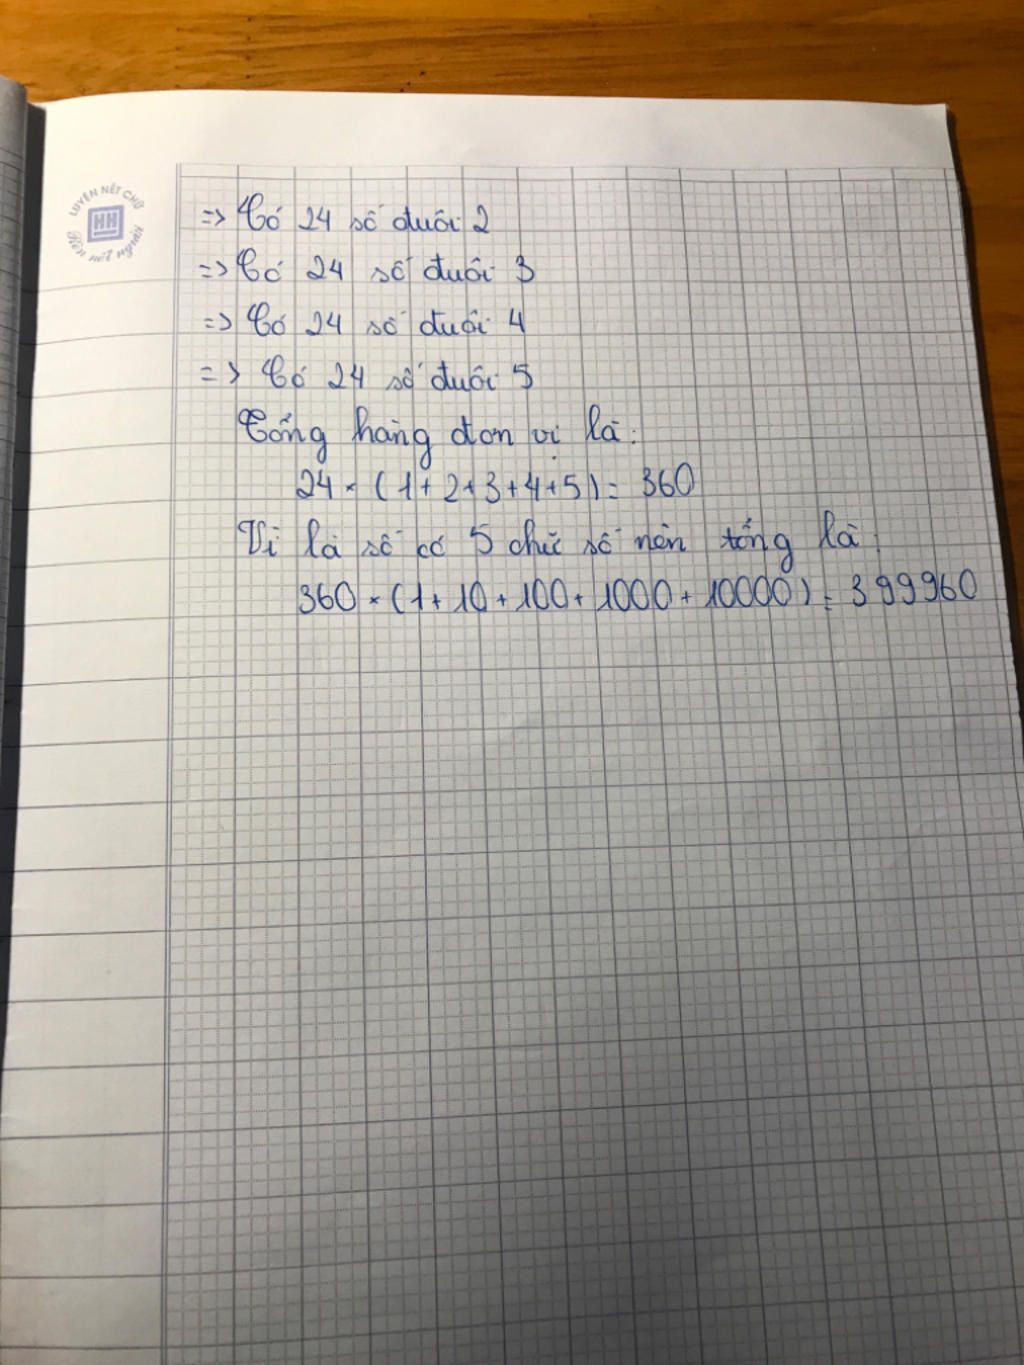 LUYỆN NÉT CHỮ
HH
Rèn nết người
=> Có 24 số đuôi 2
=> Có 24 số đuôi 3
=> Có 24 số đuôi 4
=> Có 24 số đuôi 5
Tổng hàng đơn vị là:
24 × (1+2+3+4+5) = 360
Vì là số có 5 chữ số nên tổng là:
360 × (1+10+100+1000+10000) = 399960